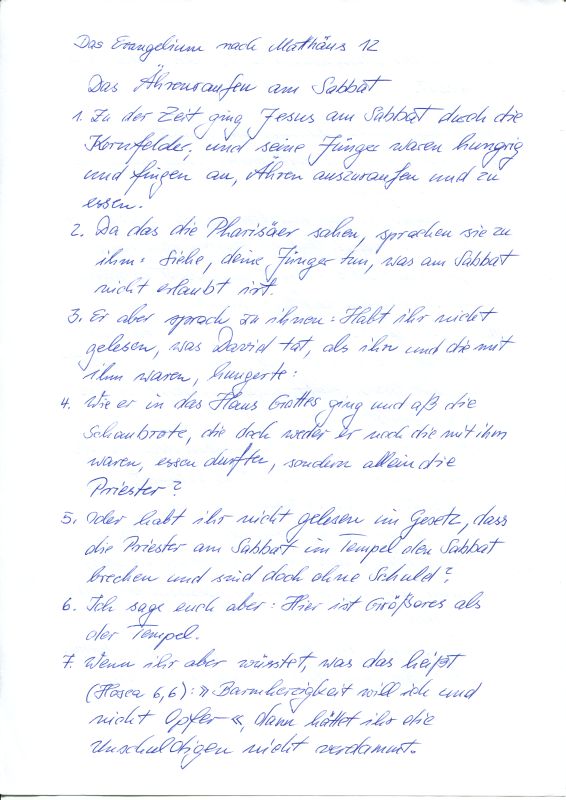 Das Evangelium nach Matthäus 12
Das Ährenraufen am Sabbat
1. Zu der Zeit ging Jesus am Sabbat durch die
Kornfelder, und seine Jünger waren hungrig
und fingen an, Ähren auszuraufen und zu
essen.
2. Da das die Pharisäer sahen, sprachen sie zu
ihm: Siehe, deine Jünger tun, was am Sabbat
nicht erlaubt ist.
3. Er aber sprach zu ihnen: Habt ihr nicht
gelesen, was David tat, als ihn und die mit
ihm waren, hungerte:
4. Wie er in das Haus Gottes ging und aß die
Schaubrote, die doch weder er noch die mit ihm
waren, essen durften, sondern allein die
Priester?
5. Oder habt ihr nicht gelesen im Gesetz, dass
die Priester am Sabbat im Tempel den Sabbat
brechen und sind doch ohne Schuld?
6. Ich sage euch aber: Hier ist Größeres als
der Tempel.
7. Wenn ihr aber wüsstet, was das heißt
(Hosea 6,6): »Barmherzigkeit will ich und
nicht Opfer«, dann hättet ihr die
Unschuldigen nicht verdammt.